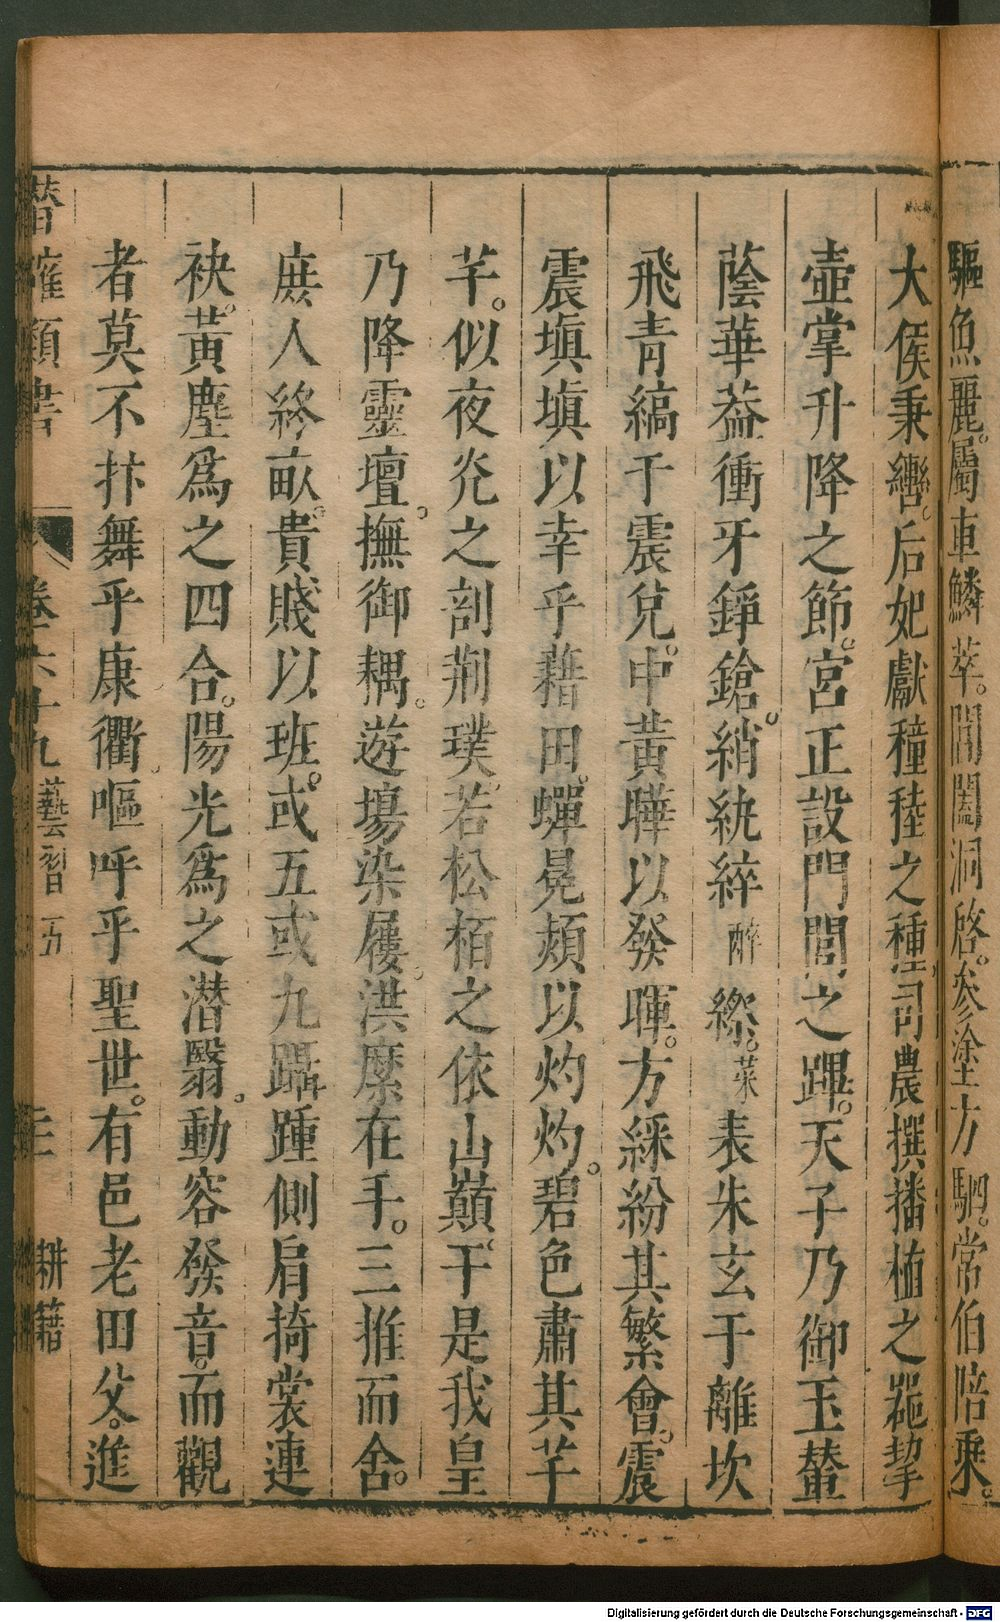 驅魚麗。屬車鱗萃。閶闔洞啓。參塗方駟。常伯陪乘。
大僕秉轡。后妃獻穜稑之種。司農撰播植之器。挈
壺掌升降之節。宮正設門閭之蹕。天子乃御玉輦
蔭華葢衝牙錚鎗。綃紈綷醉縩。菜表朱玄于離坎
飛青縞于震兌。中黃曄以發暉。方綵紛其繁會。震
震塡塡以幸乎藉田。蟬冕熲以灼灼。碧色肅其芊
芊。似夜光之剖荊璞。若松栢之依山巔。于是我皇
乃降靈壇。撫御耦。遊塲染屨。洪縻在手。三推而舍。
庶人終畝。貴賤以班。或五或九躡踵側肩掎裳連
袂。黃塵爲之四合。陽光爲之潛翳。動容發音。而觀
者莫不抃舞乎康衢。嘔呼乎聖世。有邑老田父。進
卷六十九 藝習五 二 耕籍
Digitalisierung gefördert durch die Deutsche Forschungsgemeinschaft - DFG